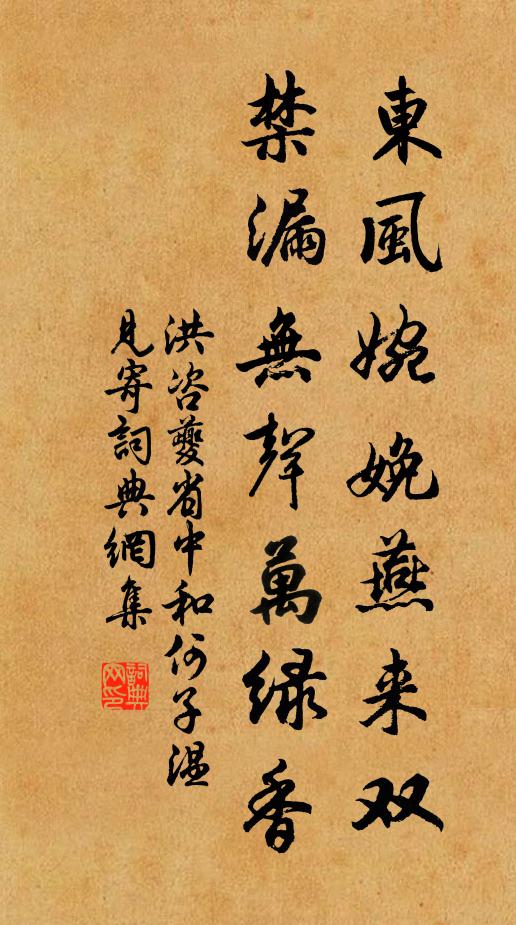 東風婉娩燕来双
禁漏無聲萬緑香
洪咨夔省中和何子温
見寄詞典網集
詞典网印